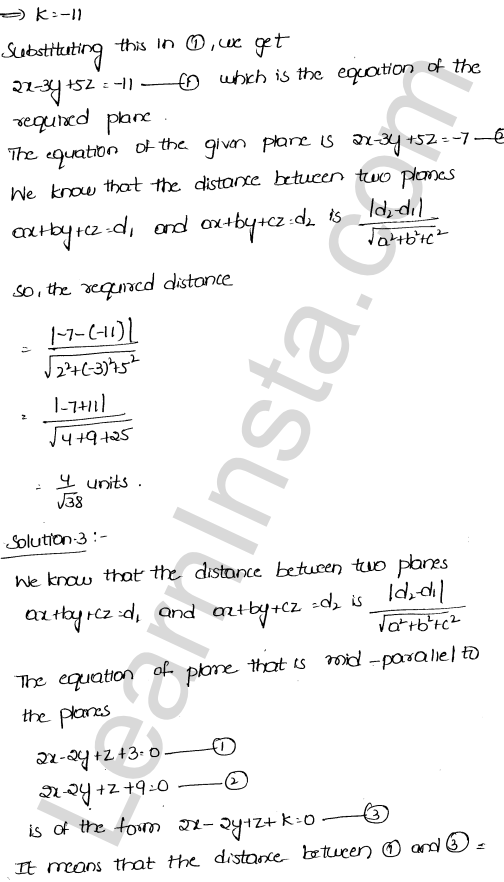 ⇒ K=-11
Substituting this in ①, we get
2x-3y+5z=-11 —① which is the equation of the
required plane.
The equation of the given plane is 2x-3y+5z=-7 —②
We know that the distance between two planes
ax+by+cz=d₁ and ax+by+cz=d₂ is |d₂-d₁| / √a²+b²+c²
So, the required distance
= |-7-(-11)| / √2²+(-3)²+5²
= |-7+11| / √4+9+25
= 4/√38 units.
Solution-3 :-
We know that the distance between two planes
ax+by+cz=d₁ and ax+by+cz=d₂ is |d₂-d₁| / √a²+b²+c²
The equation of plane that is mid-parallel to
the planes
2x-2y+z+3=0 —①
2x-2y+z+9=0 —②
is of the form 2x-2y+z+k=0 —③
It means that the distance between ① and ③ =
LearnInsta.com